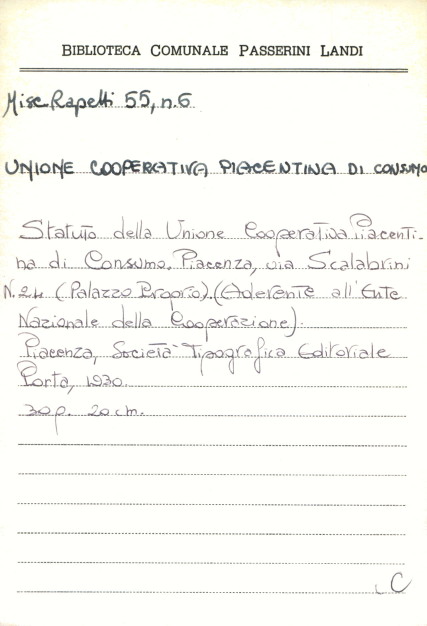 BIBLIOTECA COMUNALE PASSERINI LANDI
Misc Rapetti 55, n.6
UNIONE COOPERATIVA PIACENTINA DI CONSUMO
Statuto della Unione Cooperativa Piacenti-
na di Consumo. Piacenza, via Scalabrini
N. 24 (Palazzo Proprio). (Aderente all'Ente
Nazionale della Cooperazione).
Piacenza, Società Tipografica Editoriale
Porta, 1930.
30 p. 20 cm.
C